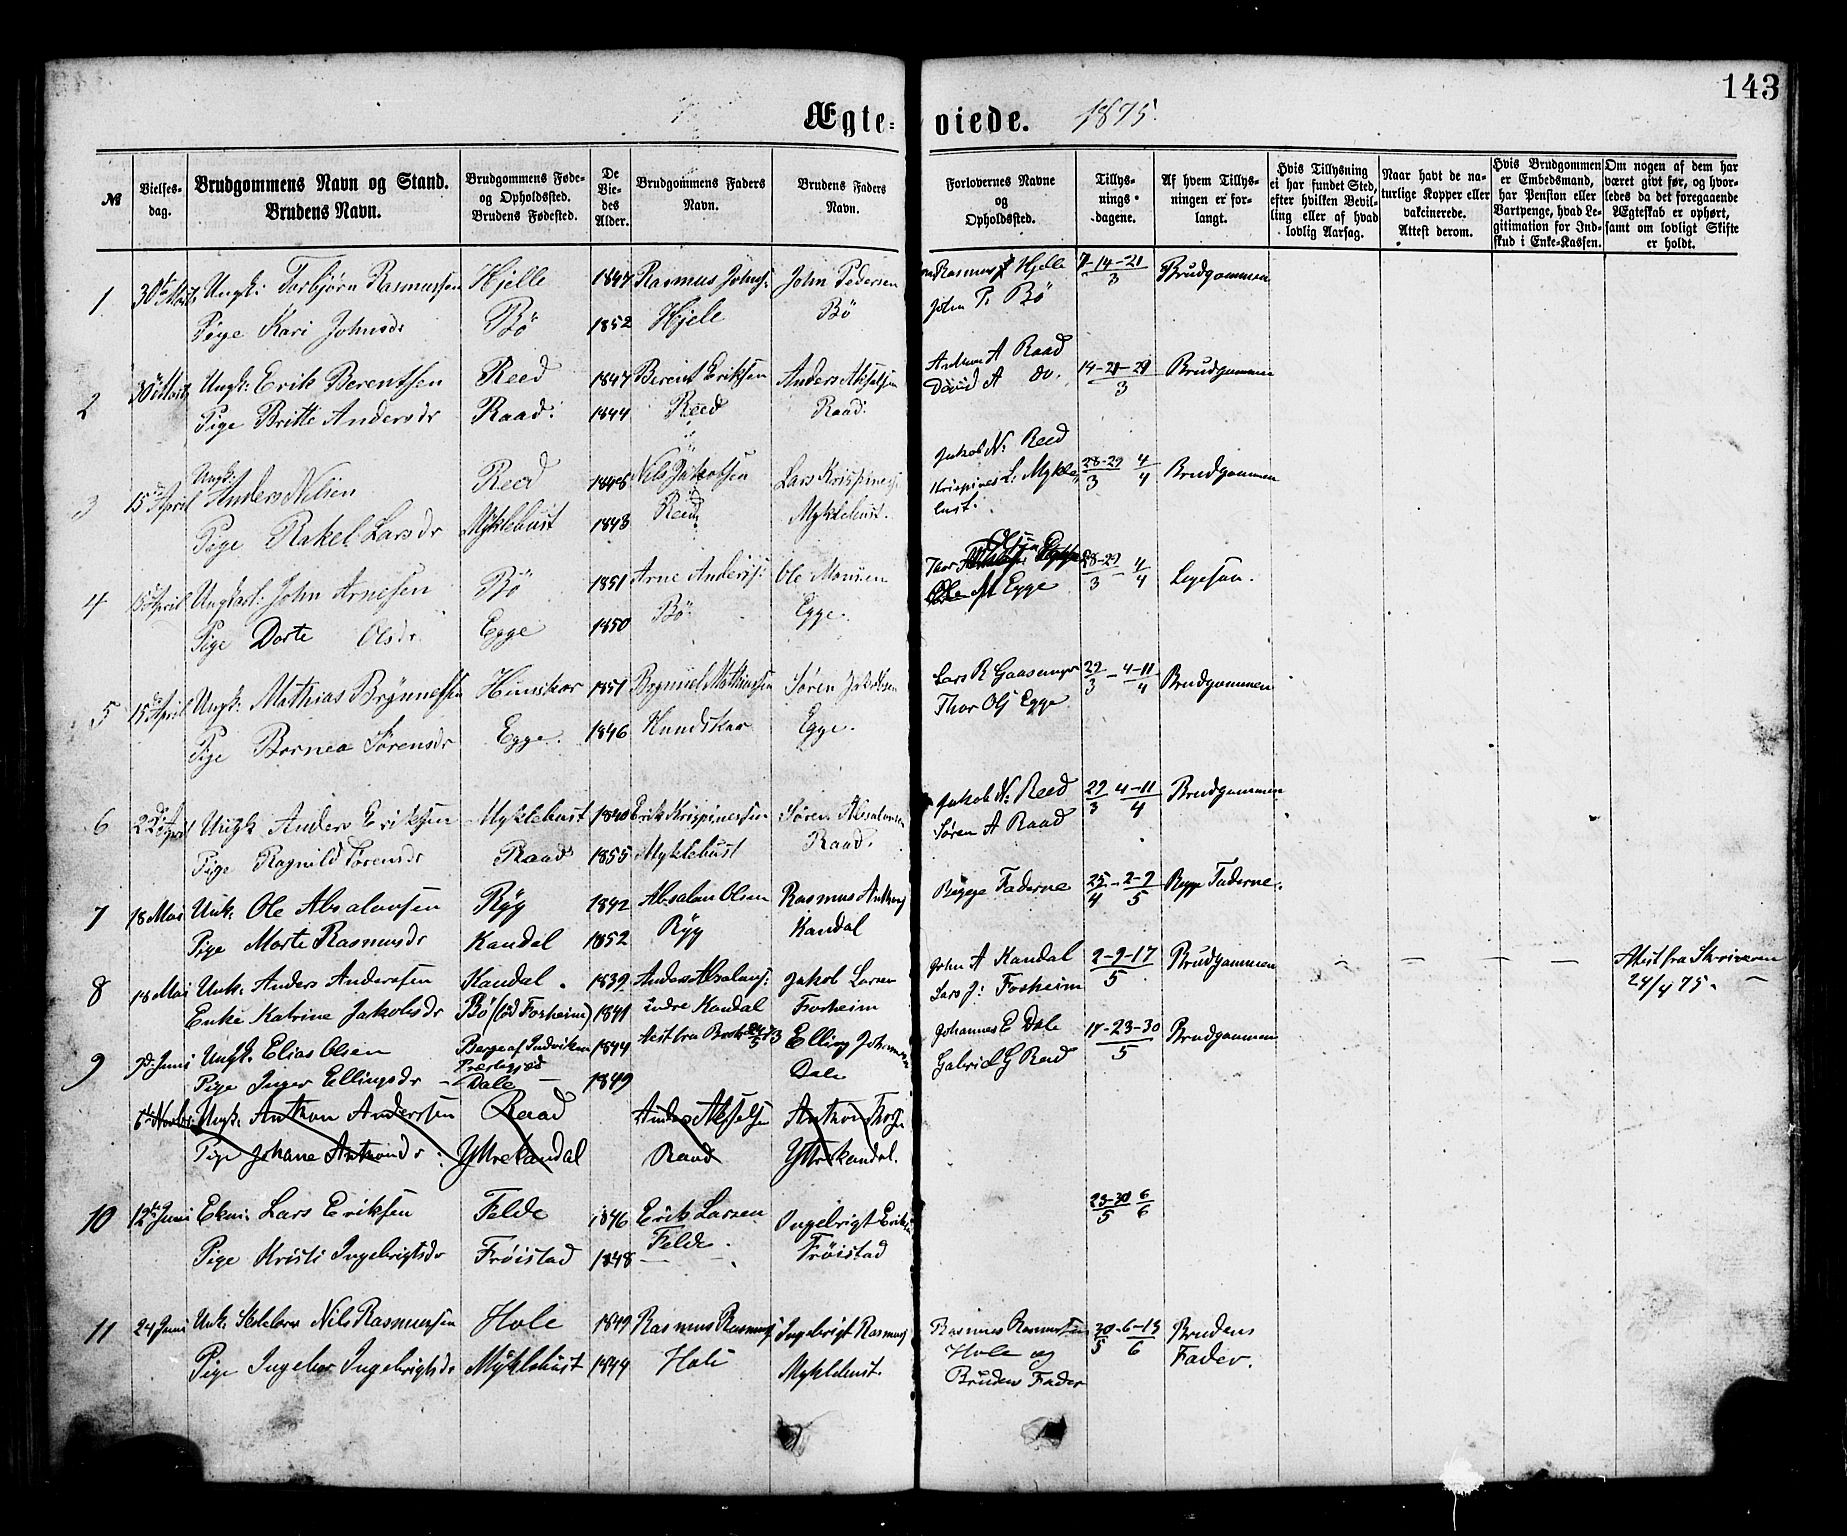 143
Ægteviede. 1875.
№
Vielsesdag.
Brudgommens Navn og Stand.
Brudens Navn.
Brudgommens Føde-
og Opholdssted.
Brudens Fødested.
De
Vie-
des
Alder.
Brudgommens Faders
Navn.
Brudens Faders
Navn.
Forlovernes Navne
og
Opholdssted.
Tillys-
nings-
dagene.
Af hvem Tillys-
ningen er for-
langt.
Hvis Tillysning
ei har fundet Sted,
efter hvilken Bevil-
ling eller af hvad
lovlig Aarsag.
Naar havt de na-
turlige Kopper eller
vakcinerede.
Attest derom.
Hvis Brudgommen
er Embedsmand,
har Pension eller
Vartpenge, hvad Le-
gitimation for Ind-
skud i Enke-Kassen.
Om nogen af dem har
været givt før, og hvor-
ledes da det foregaaende
Ægteskab er ophørt,
samt om lovligt Skifte
er holdt.
1 30te Marts Ungk: Torbjørn Rasmussen Hjelle 1847 Rasmus Johns: John Pedersen Rasmus Hjelle 7-14-21 Brudgommen
Pige Kari Johnsdr Bö 1852 Hjele Bö John P. Bö 3
2 30te Marts Ungk: Erik Berentsen Reed 1847 Berent Eriksen Anders Akselsen Anthon A Raad 14-21-29 Brudgommen
Pige Britte Andersdr Raad: 1844 Reed Raad. David A do. 3
3 15de April Ungk: Anders Nilsen Reed 1846 Nils Jakobsen Lars Krispines: Jakob N: Reed 28-29 4 Brudgommen
Pige Rakel Larsdr Myklebust 1848 Reed Myklebust. Krispines L: Mykle 3 4
bust.
4 15de April Ungkarl: John Arnesen Bö 1851 Arne Anders: Ole Monsen Thor Olsen Egge 28-29 4
Pige Dorte Olsdr Egge 1850 Bö Egge. Ole M Egge 3 4
5 15de April Ungk: Mathias Brynnelsen Hunskar 1851 Brynniel Mathiassen Søren Jakobsen Lars R 29 4-11 Brudgommen
Pige Bornea Sørensdr Egge. 1846 Hundskar Egge. Thor Olsj Egge 3 4
6 22de April Ungk Anders Eriksen Myklebust 1840 Erik Krispinessen Søren Absalonsen Jakob N: Reed 29 4-11 Brudgommen
Pige Ragnild Sørensdr Raad 1855 Myklebust Raad. Søren A Raad 3 4
7 18 Mai Unk: Ole Absalonsen Ryg 1842 Absalon Olsen Rasmus Anthons Begge Faderne 25 2-9 Begge Faderne.
Pige Marte Rasmusdr Kandal 1852 Ryg Kandal 4 5
8 18 Mai Unk: Anders Andersen Kandal. 1839 Anders Absalons: Jakob Larsen John A Kandal 2-9-17 Brudgommen Attest fra Skriveren
Enke Katrine Jakobsdr Bö (fød Forheim) 1841 indre Kandal Forheim Lars J: Forheim 5 24/4 75.
9 9de Juni Ungk: Elias Olsen Berge af Indviken 1844 Elling Johannesen Johannes E Dale 17-23-30 Brudgommen
Præstegjæld
Pige Inger Ellingsdr Dale 1849 Dale Gabriel G Reed 5
6te Novbr: Ungk: Anthon Anderssen Raad Anders Akselsen Anthon Thors:
Pige Johane Antondr: Ytre Kandal Raad Ytre Kandal.
10 12te Juni Ekm: Lars Eriksen Felde 1846 Erik Larsen Ingebrigt Eriks 23-30 6
Pige Kristi Ingebrigtsdr Frøistad 1848 Felde. Frøistad 5 6
11 24 Juni Unk: Skolelærer Nils Rasmussen Hole 1849 Rasmus Rasmusj Ingebrigt Rasmusj Rasmus Rasmussen 30 6-13 Brudens
Pige Ingeber Ingebrigtsdr Myklebust 1844 Hole Myklebust. Hole og 5 6 Fader.
Brudens Fader